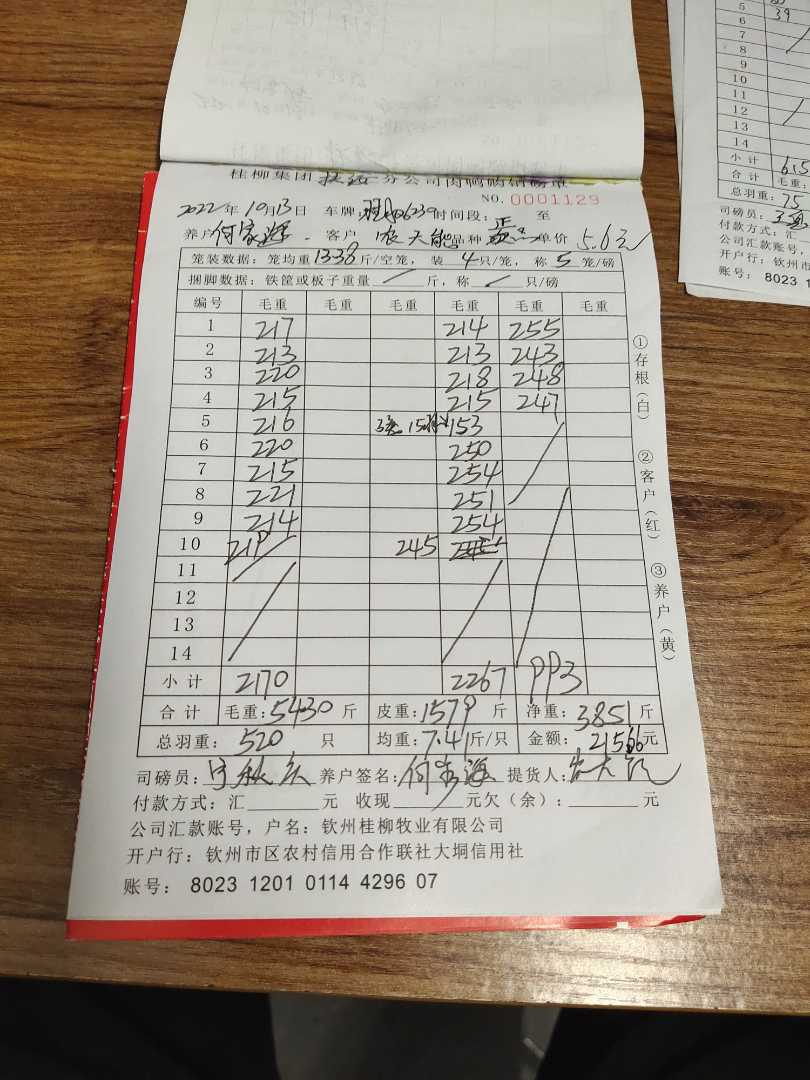 桂柳集团 分公司肉鸭鸭销磅单
NO. 0001129
2022年10月13日 车牌: 06239 时间段: 至
养户 何家 客户 农天能 品种 单价 5.6元
笼装数据: 笼均重 13.38 斤/空笼, 装 4 只/笼, 称 5 笼/磅
捆脚数据: 铁筐或板子重量 / 斤, 称 / 只/磅
编号 毛重 毛重 毛重 毛重 毛重 毛重
1 217 214 255
2 213 213 243
3 220 218 248
4 215 215 247
5 216 3笼 153
6 220 250
7 215 254
8 221 251
9 214 254
10 219 245
11
12
13
14
小计 2170 2267 993
合计 毛重: 5430 斤 皮重: 1579 斤 净重: 3851 斤
总羽重: 520 只 均重: 7.41 斤/只 金额: 21566 元
司磅员: 养户签名: 何 提货人:
付款方式: 汇 元 收现 元欠(余): 元
公司汇款账号, 户名: 钦州桂柳牧业有限公司
开户行: 钦州市区农村信用合作联社大垌信用社
账号: 8023 1201 0114 4296 07
①存根(白)
②客户(红)
③养户(黄)
5 39
6
7
8
9
10
11
12
13
14
小计 6.15
合计 毛重:
总羽重: 75
司磅员:
付款方式: 汇
公司汇款账号,
开户行: 钦州
账号: 8023 1